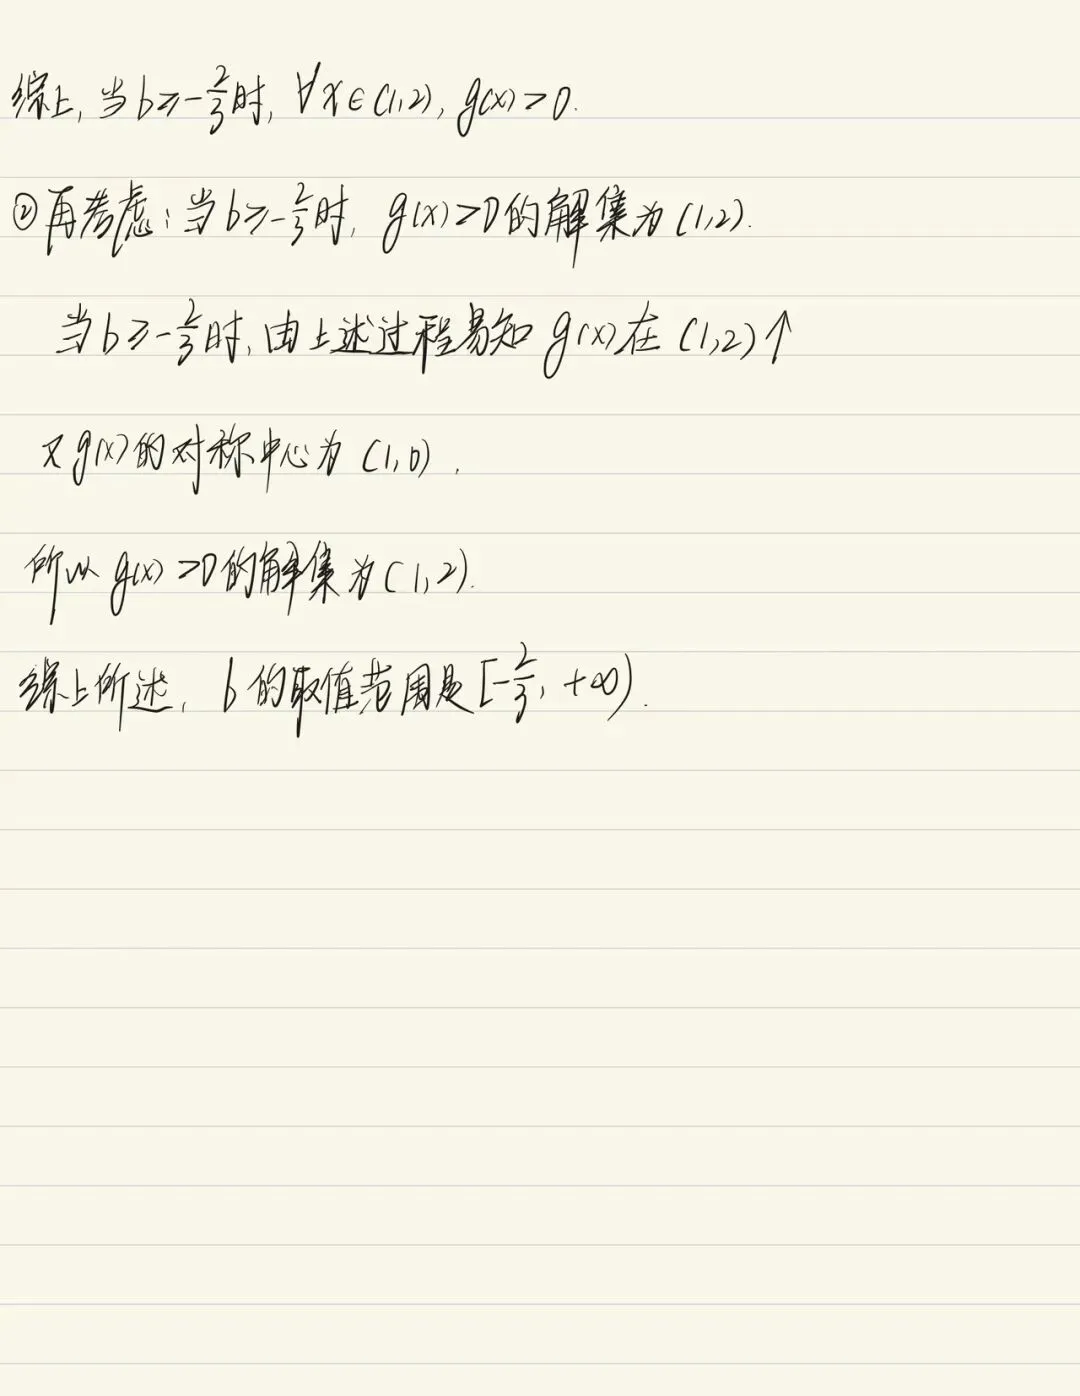 综上, 当 b≥-2/3 时, ∀x∈(1,2), g(x)>0.
②再考虑: 当 b≥-2/3 时, g(x)>0的解集为(1,2).
当 b≥-2/3 时, 由上述过程易知 g(x)在(1,2)↑
又 g(x)的对称中心为(1,0),
所以 g(x)>0的解集为(1,2).
综上所述, b的取值范围是[-2/3, +∞).